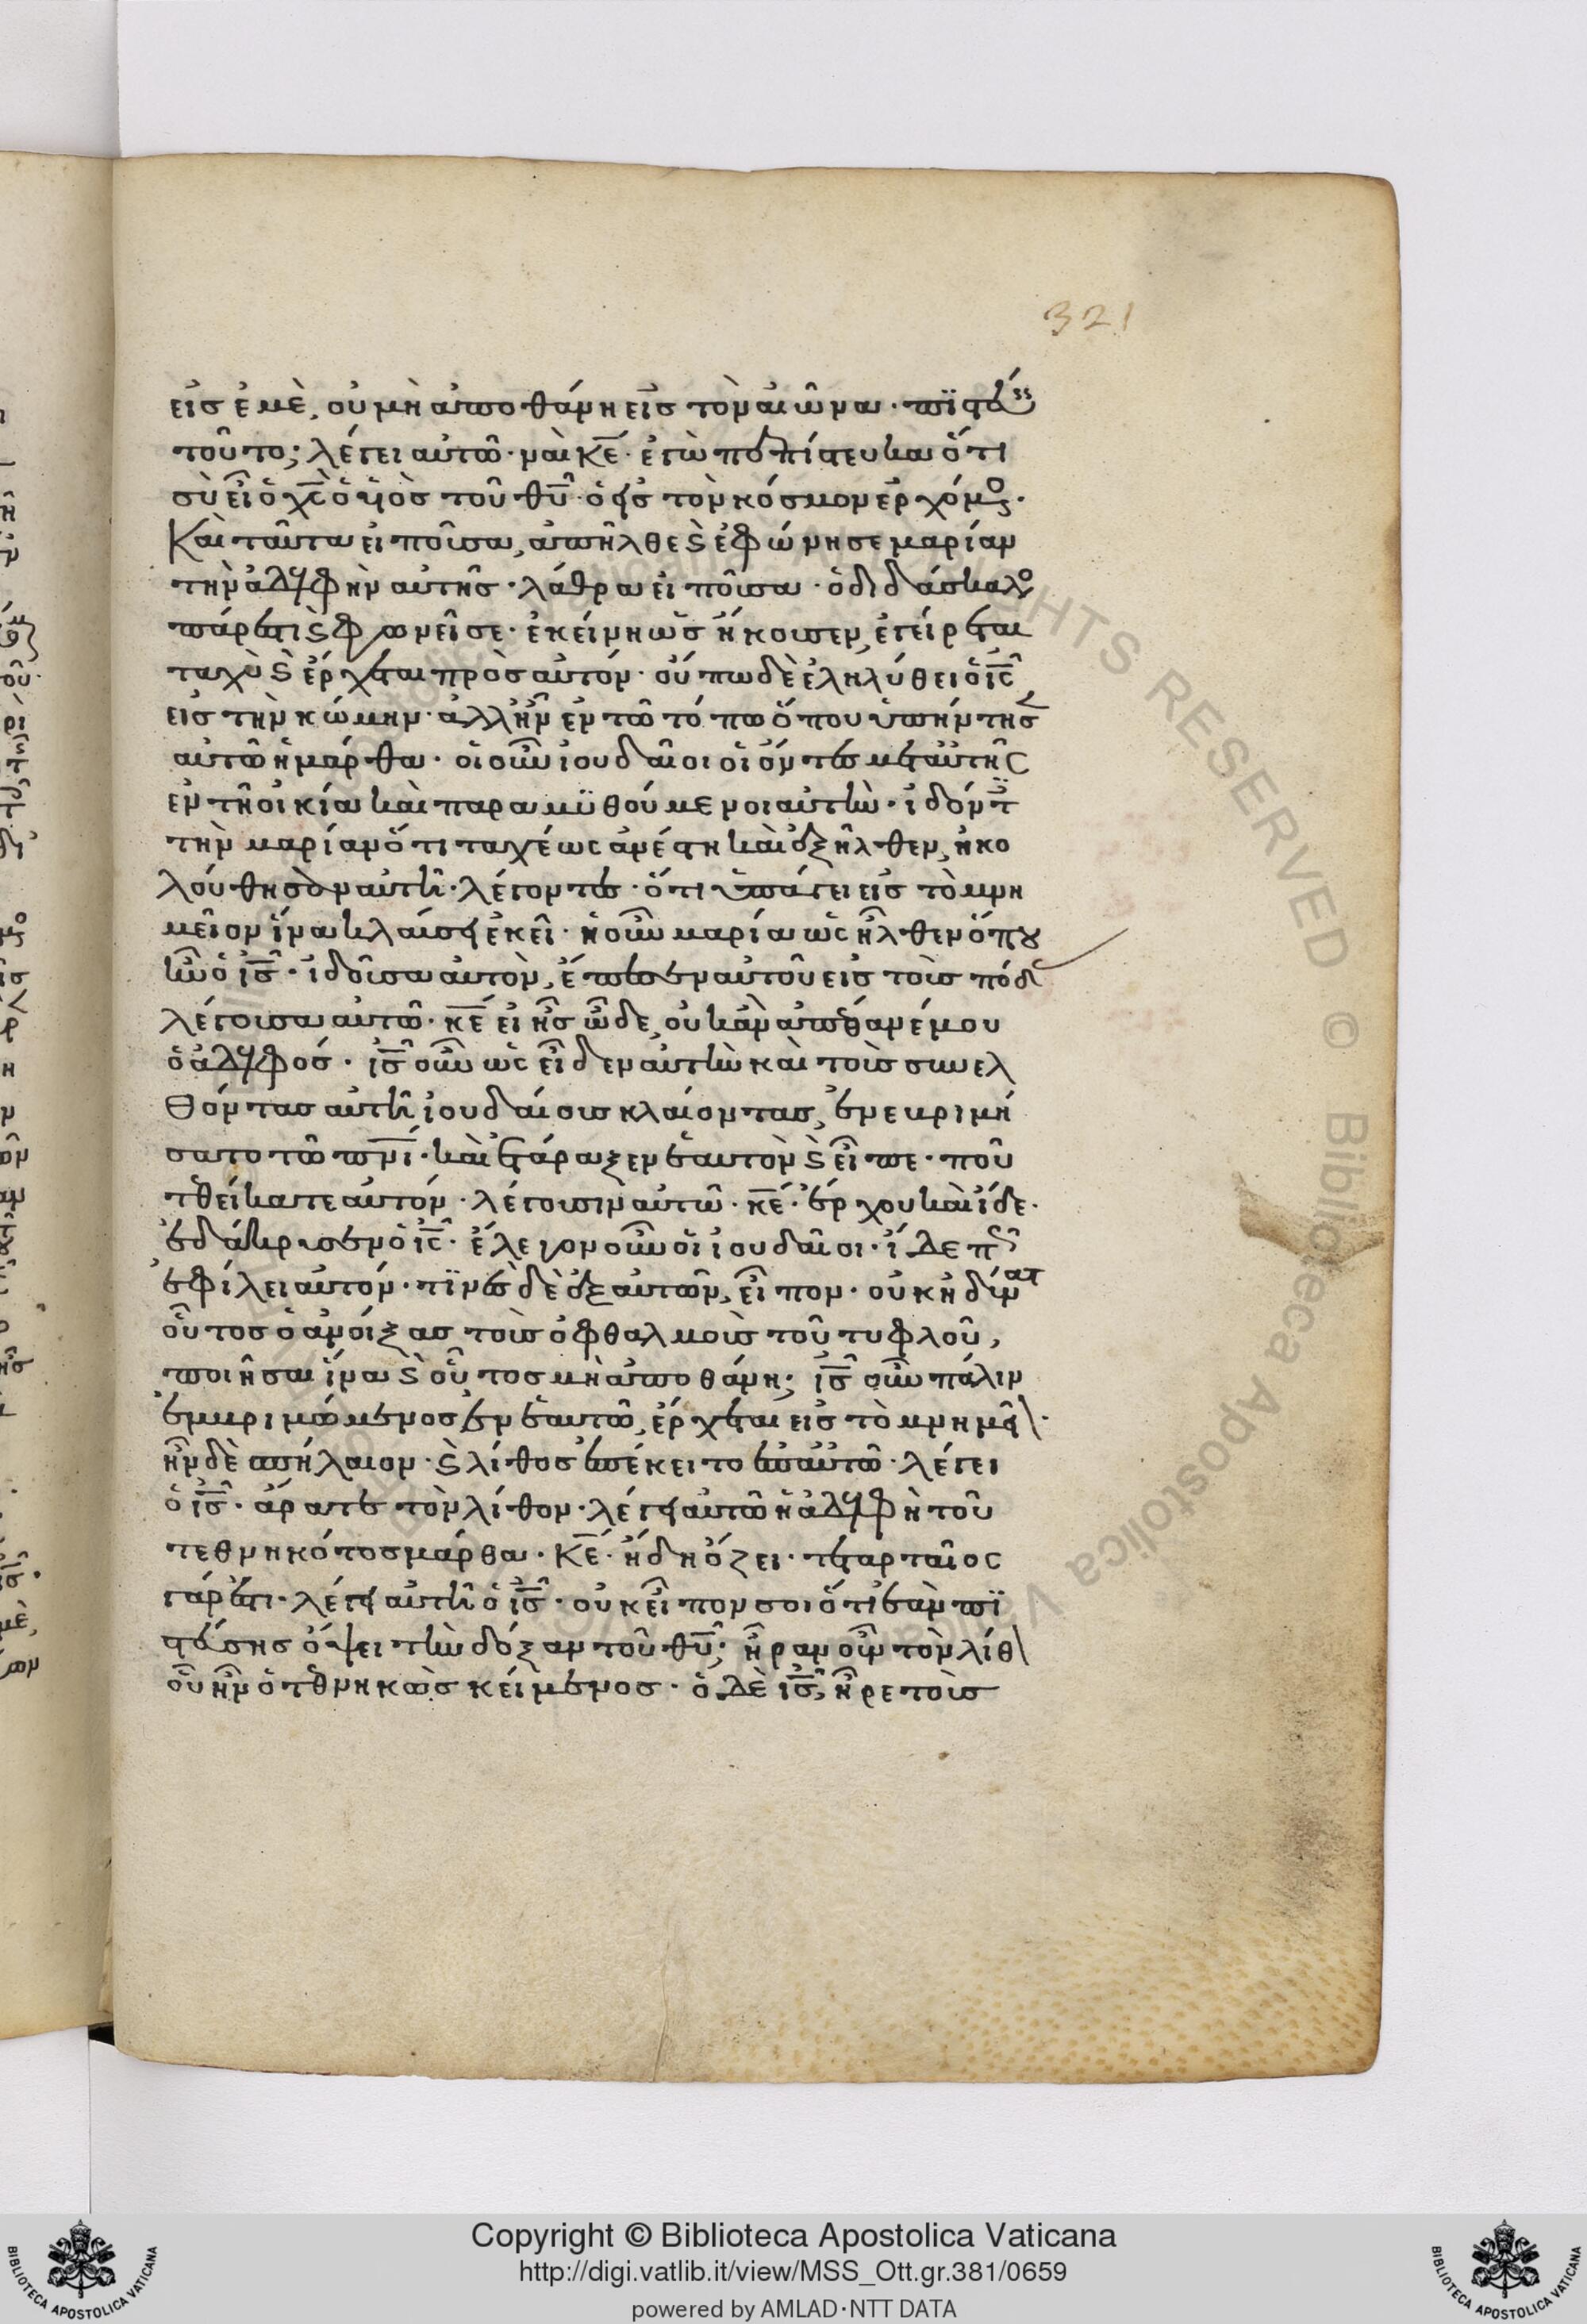 321
εἰς ἐμὲ, οὐ μὴ ἀποθάνη εἰς τὸν αἰῶνα· πϊστεύεις
τοῦτο; λέγει αὐτῶ· ναὶ κε̅· ἐγὼ πεπίστευκα ὅτι
σὺ εἶ ὁ χς̅ ὁ υἱὸς τοῦ θυ̅· ὁ εἰς τὸν κόσμον ἐρχόμενος·
Καὶ ταῦτα εἰποῦσα, ἀπῆλθε ϗ ἐφώνησε μαρίαν
τὴν ἀδελφὴν αὐτῆς· λάθρα εἰποῦσα· ὁ διδάσκαλος
πάρεστι ϗ φωνεῖ σε· ἐκείνη ὡς ἤκουσεν, ἐγείρεται
ταχὺ ϗ ἔρχεται πρὸς αὐτόν· οὔπω δὲ ἐληλύθει ὁ ις̅
εἰς τὴν κώμην· ἀλλ ἦν ἐν τῶ τόπω ὅπου ὑπήντησεν
αὐτῶ ἡ μάρθα· οἱ οὖν ἰουδαῖοι οἱ ὄντες μετ αὐτῆς
ἐν τῆ οἰκία καὶ παραμϋθούμενοι αὐτὴν· ἰδόντες
τὴν μαρίαν ὅτι ταχέως ἀνέστη καὶ ἐξῆλθεν, ἠκο
λούθησαν αὐτῆ· λέγοντες· ὅτι ὑπάγει εἰς τὸ μνη
μεῖον ἵνα κλαύσει ἐκεῖ· ἡ οὖν μαρία ὡς ἦλθεν ὅπου
ἦν ὁ ις̅· ἰδοῦσα αὐτὸν, ἔπεσεν αὐτοῦ εἰς τοὺς πόδας
λέγουσα αὐτῶ· κε̅ εἰ ἦς ὧδε, οὐκ ἂν ἀπέθανέ μου
ὁ ἀδελφός· ις̅ οὖν ὡς εἶδεν αὐτὴν καὶ τοὺς συνελ
θόντας αὐτῆ ἰουδαίους κλαίοντας, ἐνεβριμή
σατο τῶ πνι̅· καὶ ἐτάραξεν ἑαυτὸν ϗ εἶπε· ποῦ
τεθείκατε αὐτόν· λέγουσιν αὐτῶ· κε̅· ἔρχου καὶ ἴδε·
ἐδάκρυσεν ὁ ις̅· ἔλεγον οὖν οἱ ἰουδαῖοι· ἴδε πῶς
ἐφίλει αὐτόν· τϊνὲς δὲ ἐξ αὐτῶν, εἶπον· οὐκ ἠδύνατο
οὗτος ὁ ἀνοίξας τοὺς ὀφθαλμοὺς τοῦ τυφλοῦ,
ποιῆσαι ἵνα ϗ οὗτος μὴ ἀποθάνη; ις̅ οὖν πάλιν
ἐμβριμώμενος ἐν ἑαυτῶ, ἔρχεται εἰς τὸ μνημεῖον·
ἦν δὲ σπήλαιον· ϗ λίθος ἐπέκειτο ἐπ αὐτῶ· λέγει
ὁ ις̅· ἄρατε τὸν λίθον· λέγει αὐτῶ ἡ ἀδελφὴ τοῦ
τεθνηκότος μάρθα· κε̅· ἤδη ὄζει· τεταρταῖος
γάρ ἐστι· λέγει αὐτῆ ὁ ις̅· οὐκ εἶπον σοι ὅτι ἐὰν πϊ
στεύσης ὄψει τὴν δόξαν τοῦ θυ̅; ἦραν οὖν τὸν λίθον
οὗ ἦν ὁ τεθνηκὼς κείμενος· ὁ δὲ ις̅, ἦρε τοὺς
Copyright © Biblioteca Apostolica Vaticana
http://digi.vatlib.it/view/MSS_Ott.gr.381/0659
powered by AMLAD·NTT DATA